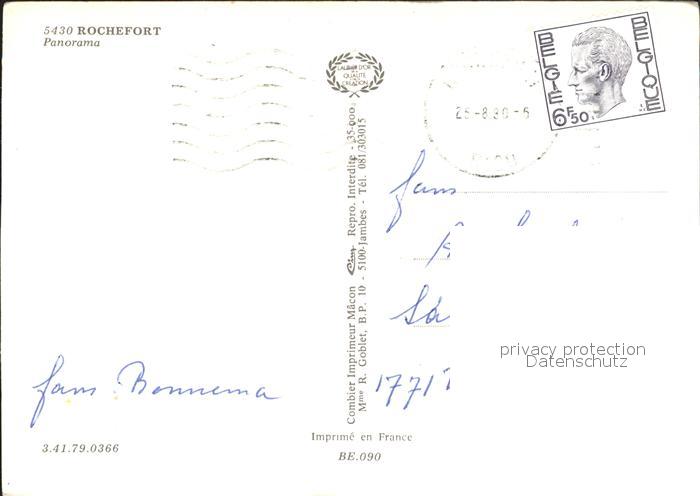 5430 ROCHEFORT
Panorama
LABEL D'OR
QUALITÉ
CRÉATION
BELGIE BELGIQUE
6F50
25-8.80-6
Combier Imprimeur Mâcon Cim Repro. Interdite - 35-000
Mme R. Goblet, B.P. 10 - 5100-Jambes - Tél. 081/303015
fam
Sá
1771
fam. Bonnema
privacy protection
Datenschutz
3.41.79.0366
Imprimé en France
BE.090